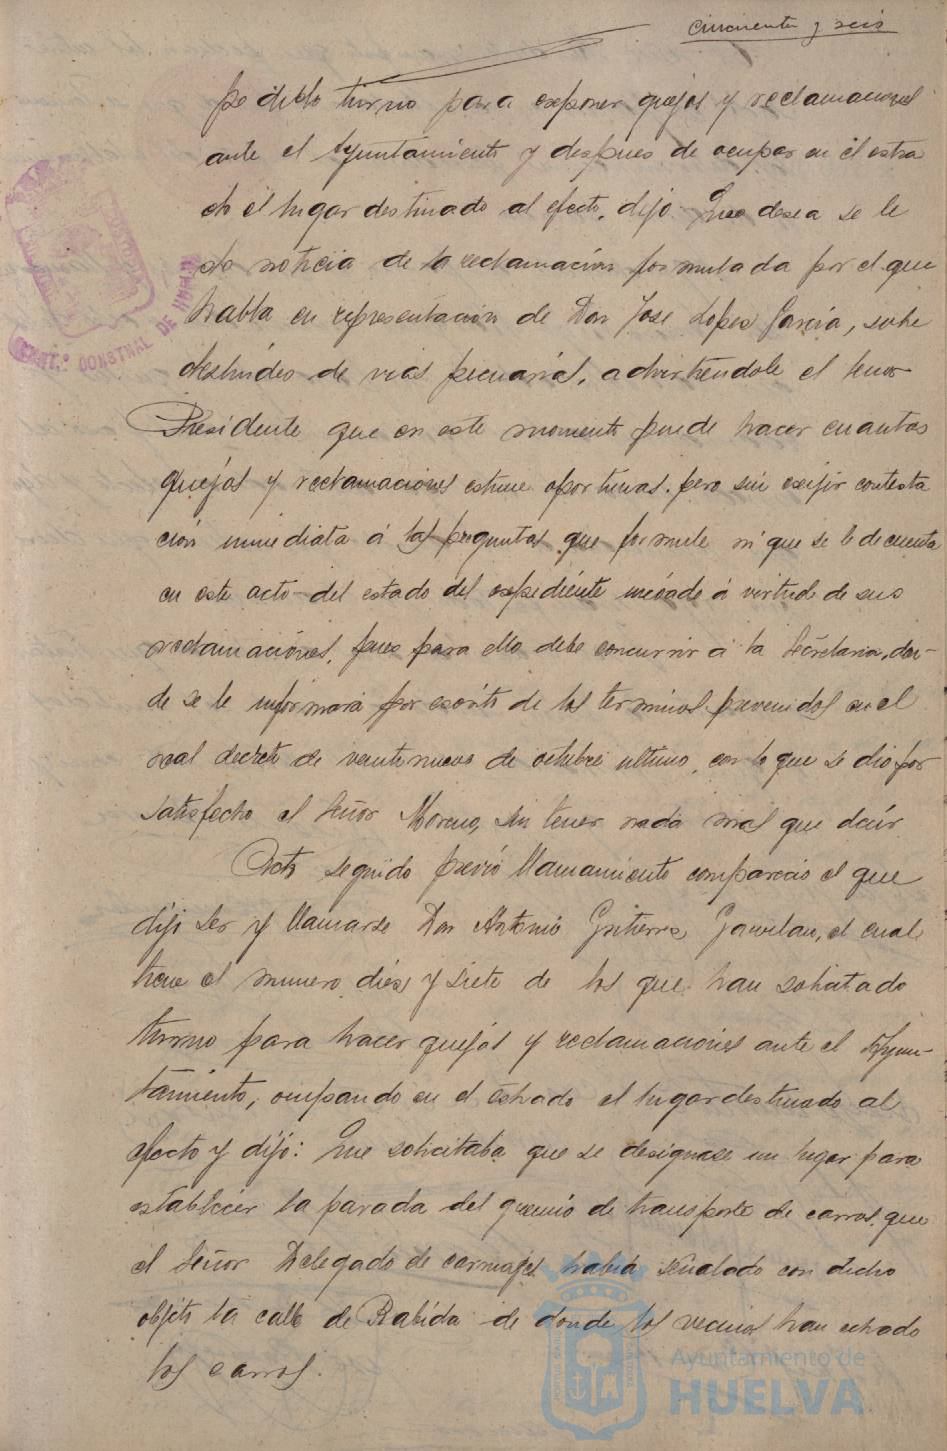 cincuenta y seis
pedido turno para exponer quejas y reclamaciones
ante el Ayuntamiento y despues de ocupar en el estra
do el lugar destinado al efecto, dijo: Que desea se le
de noticia de la reclamación formulada por el que
habla en representación de Don Jose Lopez Garcia, sobre
deslindes de vias pecuarias, advirtiendole el señor
Presidente que en este momento puede hacer cuantas
quejas y reclamaciones estime oportunas, pero sin exijir contesta
ción inmediata á las preguntas que formule ni que se le de cuenta
en este acto del estado del expediente incoado á virtud de sus
reclamaciones, pues para ello debe concurrir á la Secretaria, don-
de se le informará por escrito de los terminos prevenidos en el
real decreto de veintinueve de octubre ultimo, con lo que se dio por
satisfecho el Señor Moreno, sin tener nada mas que decir.
Acto seguido previo llamamiento comparecio el que
dijo ser y llamarse Don Antonio Gutierrez Gavilan, el cual
tiene el numero diez y siete de los que han solicitado
turno para hacer quejas y reclamaciones ante el Ayun-
tamiento, ocupando en el estrado el lugar destinado al
efecto y dijo: Que solicitaba que se designase un lugar para
establecer la parada del gremio de transporte de carros, que
el Señor Delegado de carruajes había señalado con dicho
objeto la calle de Rabida de donde los vecinos han echado
los carros.
CONSTNAL DE HUELVA
Ayuntamiento de
HUELVA